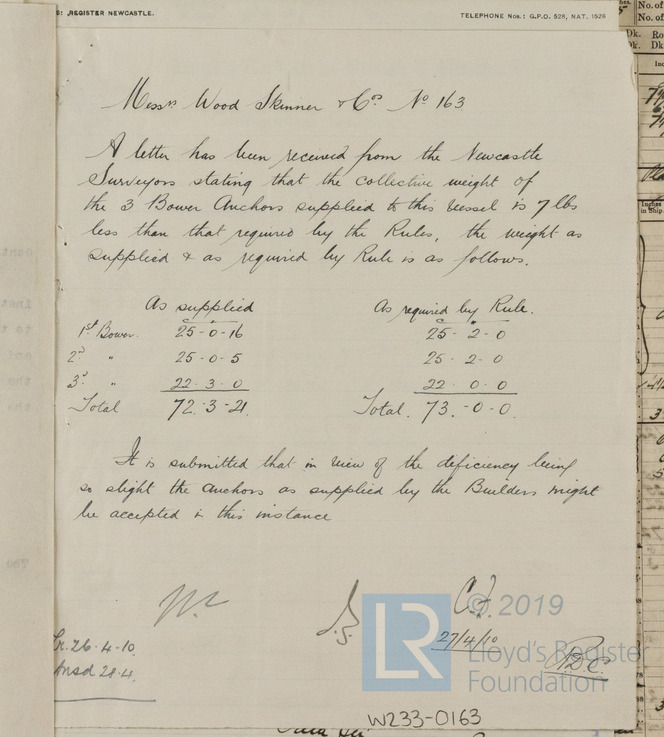 REGISTER NEWCASTLE.
TELEPHONE Nos.: G.P.O. 528, NAT. 1526
Messrs Wood Skinner & Cos No 163
A letter has been received from the Newcastle
Surveyors stating that the collective weight of
the 3 Bower Anchors supplied to this vessel is 7 lbs
less than that required by the Rules, the weight as
supplied & as required by Rule is as follows.
As supplied As required by Rule.
1st Bower. 25-0-16 25-2-0
2d " 25-0-5 25-2-0
3d " 22-3-0 22-0-0
Total 72-3-21 Total. 73-0-0
It is submitted that in view of the deficiency being
so slight the anchors as supplied by the Builders might
be accepted in this instance
26.4.10.
Ansd 28.4.
27/4/10
© 2019
Lloyd's Register
Foundation
LR
W233-0163